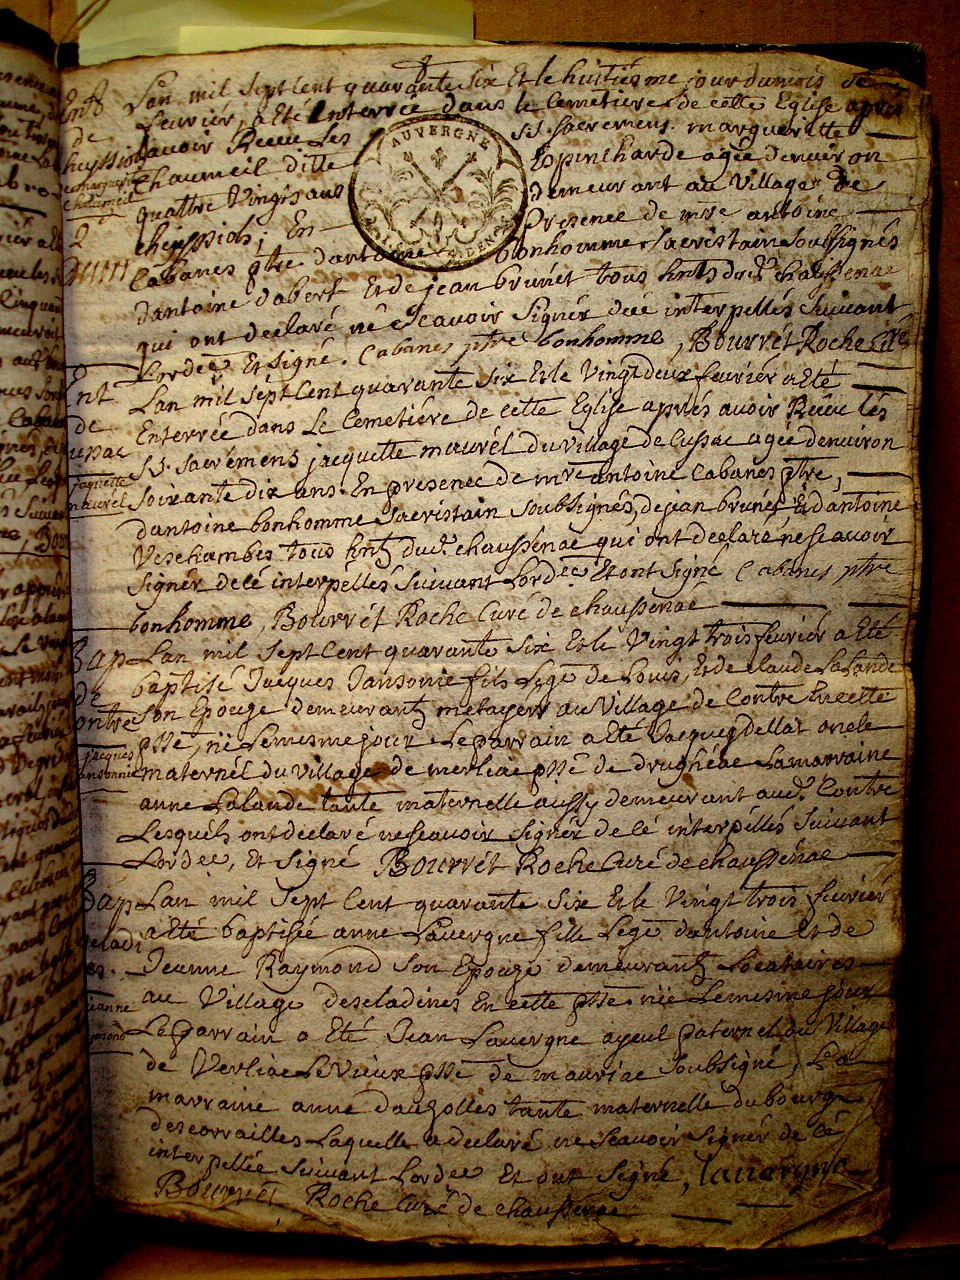 Lan mil sept Cent quarante six Et le huitiesme jour du mois de
fevrier, a Eté Interrée dans le Cemetiére de cette Eglise aprés
avoir Reçu Les st. sacremens. margueritte
chaumeil ditte Espincharde agée denviron
quattre Vingts ans demeurant au Village de
cheyssiol; En Presence de mre antoine
Cabanes ptre dantoine bonhomme sacristain soussignés
dantoine dabert Et de jean brunét tous hnts dud. chaussenac
qui ont declaré ne Scavoir Signér de cé interpellés Suivant
Lordce Et Signé. Cabanes ptre bonhomme, Bourrét Roche Curé
AUVERGNE
Ent
de
cheyssiol
marguerite
chaumeil
2
Lan mil sépt Cent quarante six Et le Vingt deux fevriér a Eté
Enterrée dans Le Cemetiére de cette Eglise aprés avoir Reçu lés
SS. Sacremens jacquette maurél du village de Cussac agée denviron
soixante dix ans. En presence de mre antoine Cabanes ptre,
dantoine bonhomme Sacristain Soubsignés, de jean brunét, Et dantoine
Veschambes tous hnts dud. chaussenac qui ont declaré ne scavoir
Signér de cé interpellés Suivant Lordce Et ont Signé Cabanes ptre
bonhomme, Bourrét Roche Curé de chaussenac
Ent
de
Cussac
jaquette
maurel
Lan mil Sept Cent quarante Six Et le Vingt trois fevriér a Eté
baptisé Jacques Jansonie fils Lége de Louis, Et de claude Lalande
Son Epouze demeurants metayers au Village de Contre En cette
psse, né Lemesme jour Le parrain a Eté Jacques dellat oncle
maternél du Village de merliac psse de drugheac La marraine
anne Lalande tante maternelle aussy demeurant aud. Contre
Lesquéls ont déclaré ne Scavoir Signér de cé intérpéllés Suivant
Lordce, Et Signé Bourrét Roche Curé de chaussenac
Bap
de
Contre
jacques
jansonnie
Lan mil Sept Cent quarante Six Et le Vingt trois fevriér
a Eté baptisée anne Lauvergne fille Lége dantoine Et de
Jeanne Raymond Son Epouze demeurants Locataires
au Village desceladines En cette psse. née Lemesme jour
Le parrain a Eté Jean Lauvergne ayeul paternel du Village
de Verliac Le Vieux psse de mauriac Soubsigné, La
marraine anne dauzolles tante maternelle du bourg
descorrailles Laquelle a declaré ne Scavoir Signér de cé
interpéllée Suivant Lordce Et ont Signé, lauvergne
Bourrét Roche Curé de chaussenac
Bap